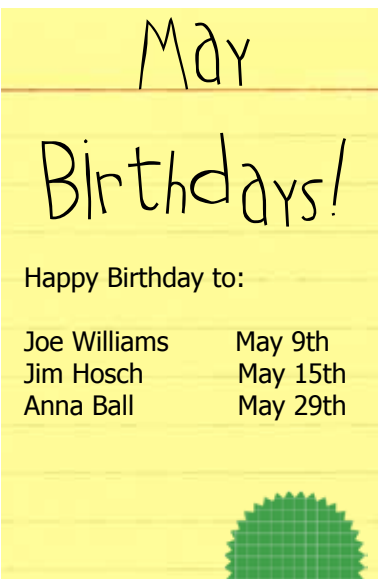 May
Birthdays!
Happy Birthday to:
Joe Williams May 9th
Jim Hosch May 15th
Anna Ball May 29th